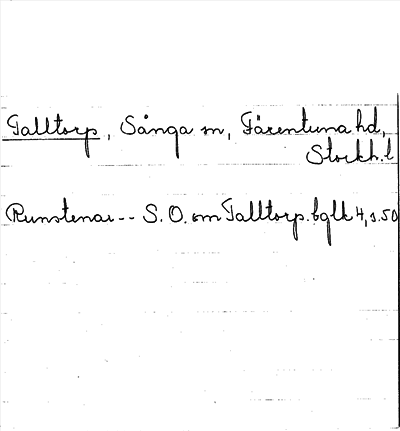 Talltorp, Sånga sn, Färentuna hd,
Stockh. l
Runstenar -- S. O. om Talltorp. bglk 4, s. 50